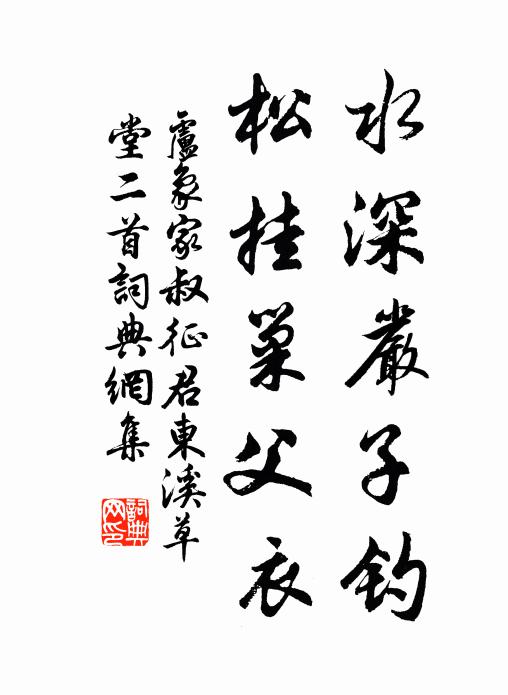 水深嚴子钓
松挂巢父衣
盧象家叔征君東溪草
堂二首詞典網集
詞典
网印